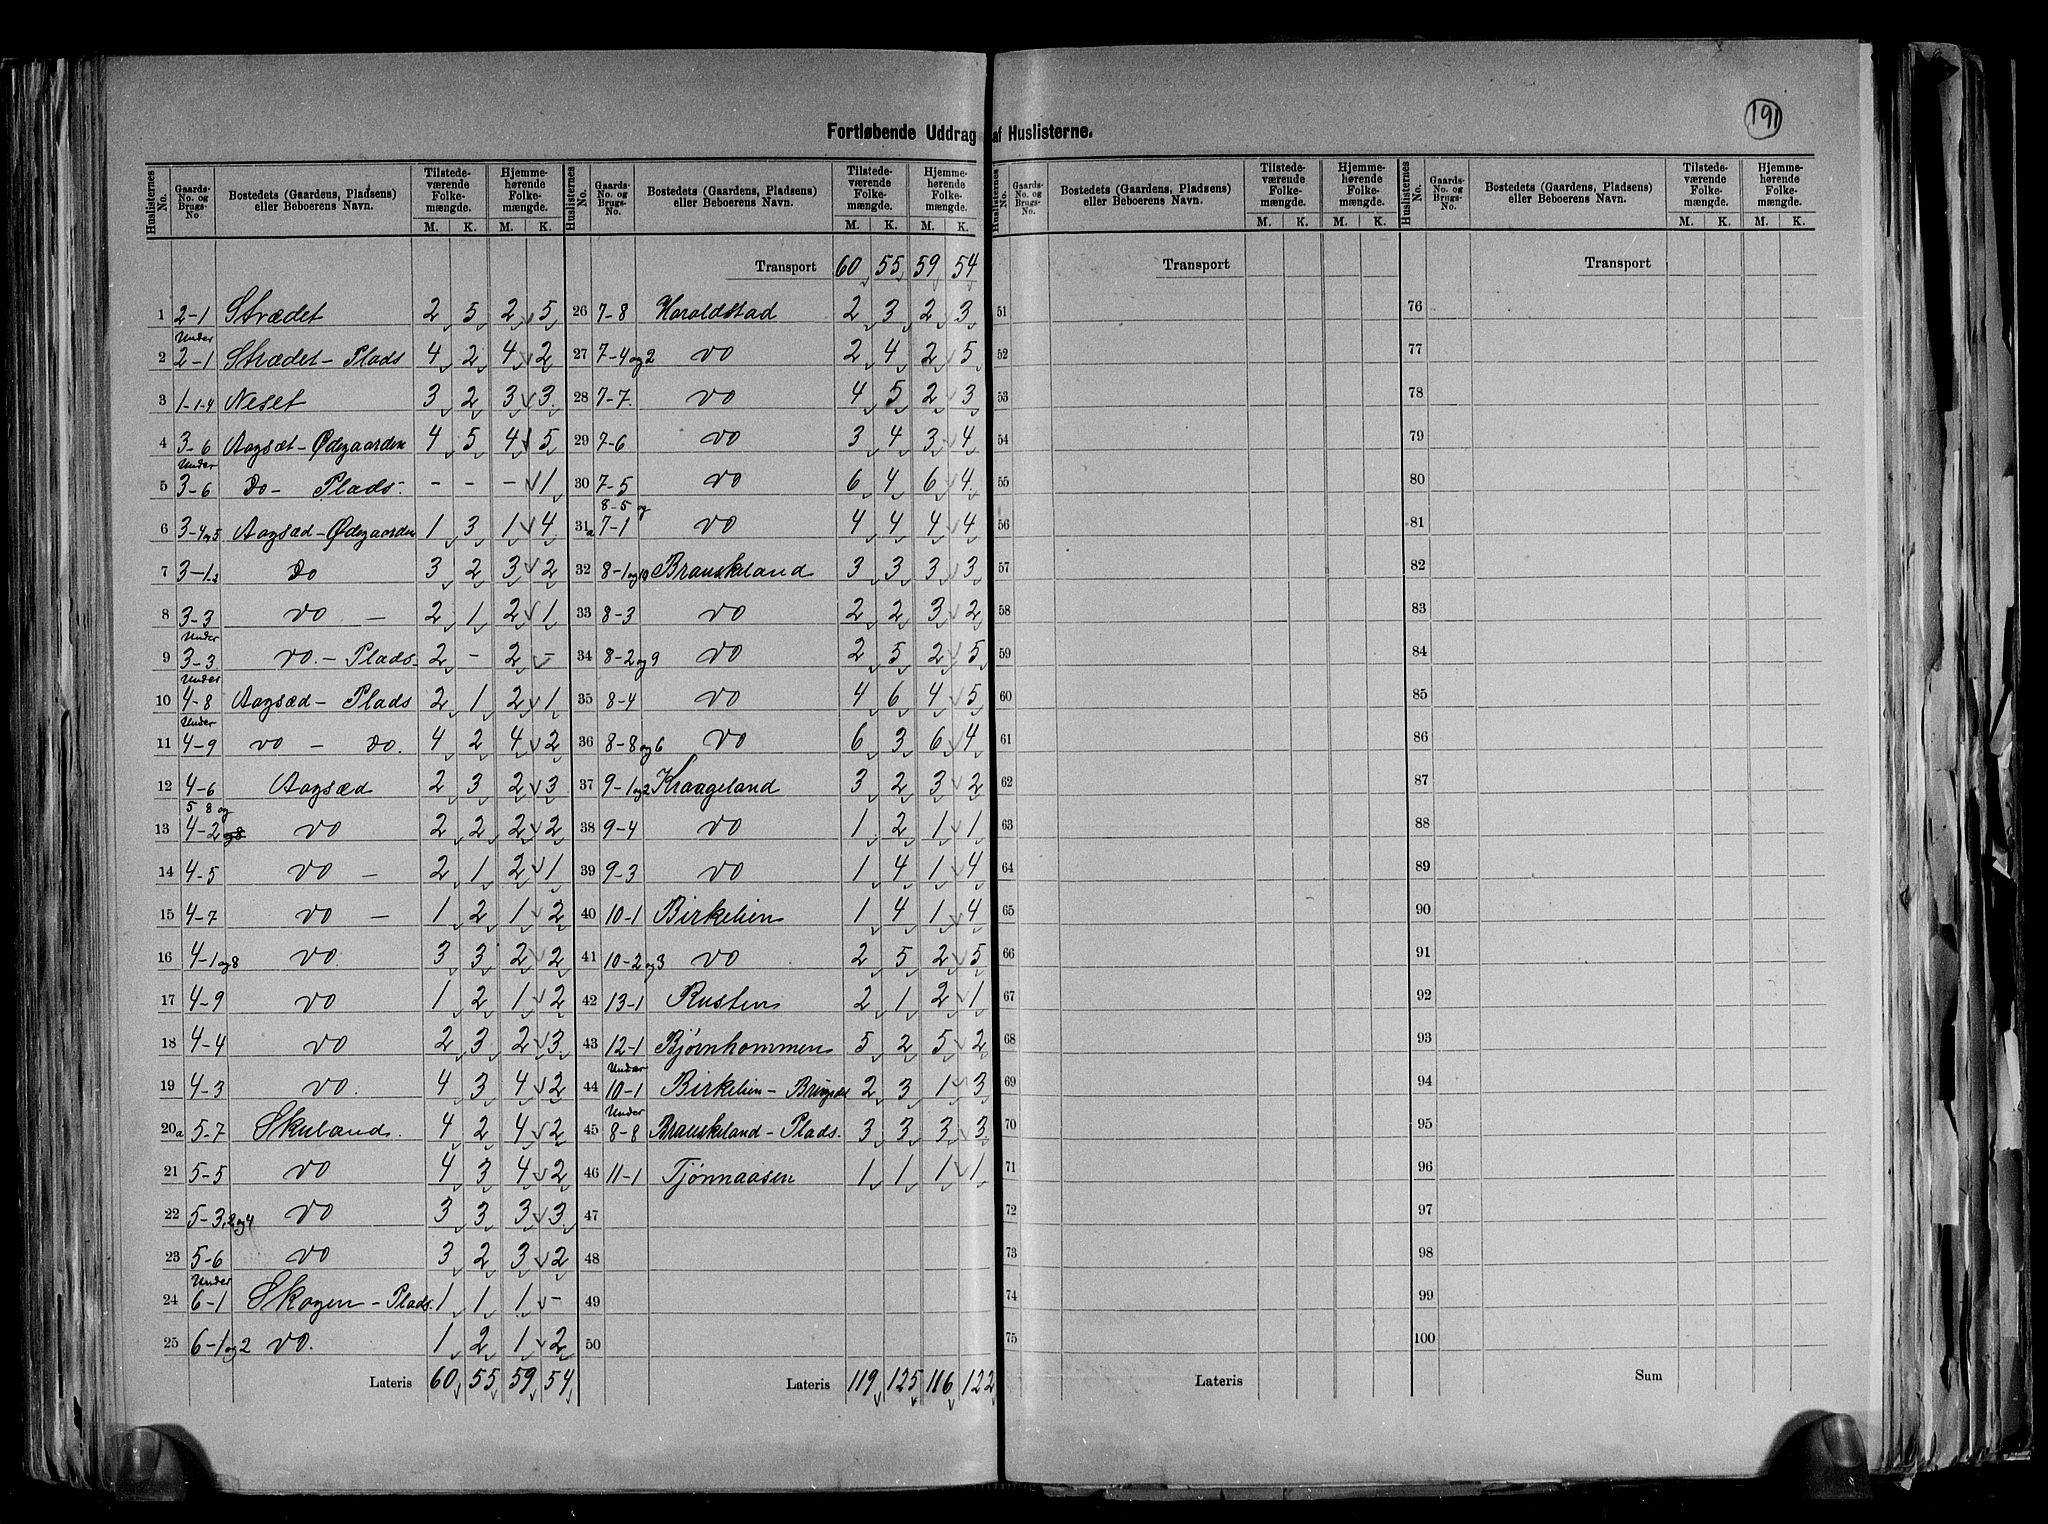 191
Fortløbende Uddrag af Huslisterne.
Huslisternes No. | Gaards-No. og Brugs-No. | Bostedets (Gaardens, Pladsens) eller Beboerens Navn. | Tilstedeværende Folkemængde. M. K. | Hjemmehørende Folkemængde. M. K.
1 | 2-1 | Strædet | 2 | 5 | 2 | 5
2 | Under 2-1 | Strædet - Plads | 4 | 2 | 4 | 2
3 | 1-1-4 | Neset | 3 | 2 | 3 | 3
4 | 3-6 | Aagsæt - Ødegaarden | 4 | 5 | 4 | 5
5 | Under 3-6 | Do - Plads. | - | - | - | 1
6 | 3-4 og 5 | Aagsæd - Ødegaarden | 1 | 3 | 1 | 4
7 | 3-1.2 | Do | 3 | 2 | 3 | 2
8 | 3-3 | Do - | 2 | 1 | 2 | 1
9 | Under 3-3 | Do. - Plads | 2 | - | 2 | -
10 | Under 4-8 | Aagsæd - Plads | 2 | 1 | 2 | 1
11 | Under 4-9 | Do - Do. | 4 | 2 | 4 | 2
12 | 4-6 | Aagsæd | 2 | 3 | 2 | 3
13 | 5 8 og 4-2 og 8 | Do | 2 | 2 | 2 | 2
14 | 4-5 | Do - | 2 | 1 | 2 | 1
15 | 4-7 | Do - | 1 | 2 | 1 | 2
16 | 4-1 og 8 | Do. | 3 | 3 | 2 | 2
17 | 4-9 | Do | 1 | 2 | 1 | 2
18 | 4-4 | Do | 2 | 3 | 2 | 3
19 | 4-3 | Do. | 4 | 3 | 4 | 2
20a | 5-7 | Skuland. | 4 | 2 | 4 | 2
21 | 5-5 | Do | 4 | 3 | 4 | 2
22 | 5-3,2 og 4 | Do | 3 | 3 | 3 | 3
23 | 5-6 | Do | 3 | 2 | 3 | 2
24 | Under 6-1 | Skogen - Plads. | 1 | 1 | 1 | -
25 | 6-1 og 2 | Do. | 1 | 2 | 1 | 2
Lateris | 60 | 55 | 59 | 54
Huslisternes No. | Gaards-No. og Brugs-No. | Bostedets (Gaardens, Pladsens) eller Beboerens Navn. | Tilstedeværende Folkemængde. M. K. | Hjemmehørende Folkemængde. M. K.
Transport | 60 | 55 | 59 | 54
26 | 7-8 | Haroldstad | 2 | 3 | 2 | 3
27 | 7-4 og 2 | Do | 2 | 4 | 2 | 5
28 | 7-7. | Do | 4 | 5 | 2 | 3
29 | 7-6 | Do | 3 | 4 | 3 | 4
30 | 7-5 | Do | 6 | 4 | 6 | 4
31a | 8-5 og 7-1 | Do | 4 | 4 | 4 | 4
32 | 8-1 og 10 | Brauskeland | 3 | 3 | 3 | 3
33 | 8-3 | Do | 2 | 2 | 3 | 2
34 | 8-2 og 9 | Do | 2 | 5 | 2 | 5
35 | 8-4 | Do | 4 | 6 | 4 | 5
36 | 8-8 og 6 | Do | 6 | 3 | 6 | 4
37 | 9-1 og 2 | Kraageland | 3 | 2 | 3 | 2
38 | 9-4 | Do | 1 | 2 | 1 | 1
39 | 9-3 | Do | 1 | 4 | 1 | 4
40 | 10-1 | Birkelien | 1 | 4 | 1 | 4
41 | 10-2 og 3 | Do | 2 | 5 | 2 | 5
42 | 13-1 | Rusten | 2 | 1 | 2 | 1
43 | 12-1 | Bjørnhommen | 5 | 2 | 5 | 2
44 | Under 10-1 | Birkelien - | 2 | 3 | 1 | 3
45 | Under 8-8 | Brauskeland - Plads. | 3 | 3 | 3 | 3
46 | 11-1 | Tjønnaasen | 1 | 1 | 1 | 1
47
48
49
50
Lateris | 119 | 125 | 116 | 122
Huslisternes No. | Gaards-No. og Brugs-No. | Bostedets (Gaardens, Pladsens) eller Beboerens Navn. | Tilstedeværende Folkemængde. M. K. | Hjemmehørende Folkemængde. M. K.
Transport
51
52
53
54
55
56
57
58
59
60
61
62
63
64
65
66
67
68
69
70
71
72
73
74
75
Lateris
Huslisternes No. | Gaards-No. og Brugs-No. | Bostedets (Gaardens, Pladsens) eller Beboerens Navn. | Tilstedeværende Folkemængde. M. K. | Hjemmehørende Folkemængde. M. K.
Transport
76
77
78
79
80
81
82
83
84
85
86
87
88
89
90
91
92
93
94
95
96
97
98
99
100
Sum